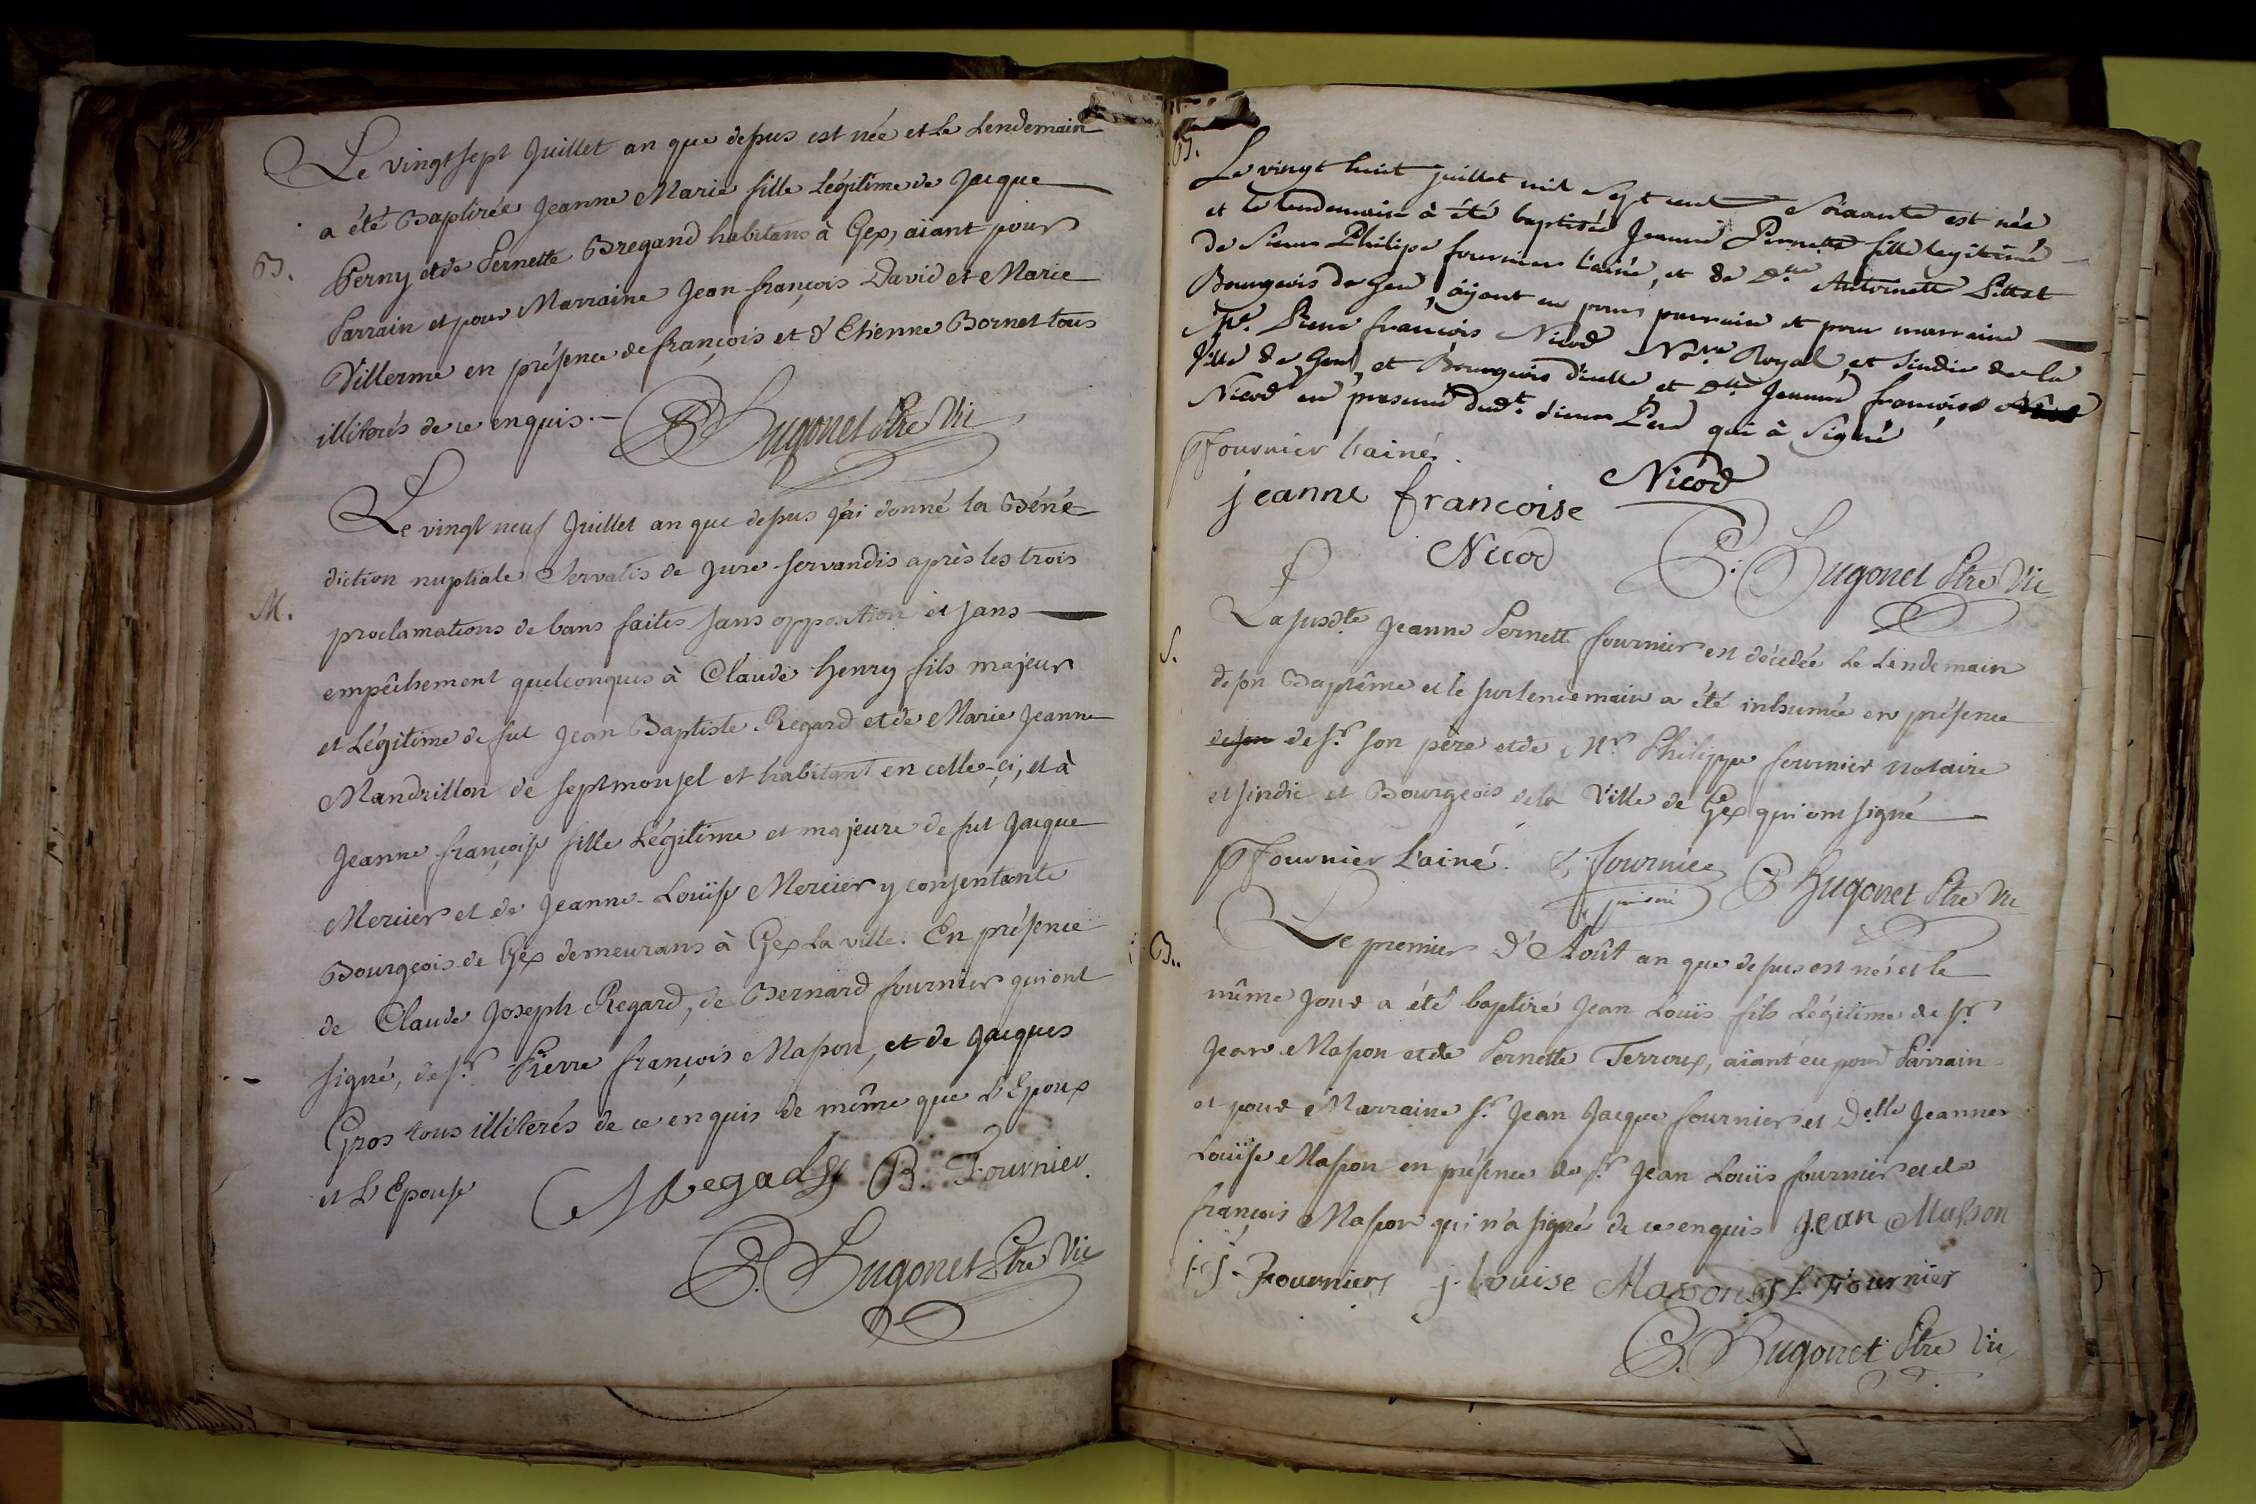 Le vingt sept Juillet an que dessus est née et Le Lendemain
a été Baptisée Jeanne Marie fille Légitime de Jacque
B.
Perny et de Pernette Bregand habitans à Gex, aiant pour
Parrain et pour Marraine Jean françois David et Marie
Villerme en présence de françois et d'Etienne Bornet tous
illiterés de ce enquis.
P. Hugonet Ptre Vic
Le vingt neuf Juillet an que dessus j'ai donné la Béné-
diction nuptiale Servatis de Jure servandis après les trois
M.
proclamations de bans faites sans opposition et sans
empêchement quelconques à Claude henry fils majeur
et Légitime de fut Jean Baptiste Regard et de Marie Jeanne
Mandrillon de septmonsel et habitant en celle-ci, et à
Jeanne françoise fille Légitime et majeure de fut Jacque
Mercier et de Jeanne-Louïse Mercier y consentante
Bourgeois de Gex demeurans à Gex la ville. En présence
de Claude Joseph Regard, de Bernard fournier qui ont
signé, de sr. Pierre françois Masson, et de Jacques
Gros tous illiterés de ce enquis de même que L'Epoux
et L'Epouse
B. Fournier.
P. Hugonet Ptre Vic
B.
Le vingt huit juillet mil sept cent soixante est née
et le lendemain à été baptisée Jeanne Pernette fille legitime
de Sieur Philipe fournier l'ainé, et de Dlle Antoinette Pittet
Bourgeois de Gex, aÿant eu pour parrain et pour marraine
Sr. Pierre françois Nicod Nore Royal, et sindic de la
Ville de Gex, et Bourgeois d'icelle et Dlle Jeanne françoise
Nicod en presence dudt. sieur Pere qui à signé
PFournier l'ainé.
Nicod
jeanne françoise
Nicod
P. Hugonet Ptre Vic
La susdte Jeanne Pernett fournier est décedée Le Lendemain
S.
de son Baptême et le surlendemain a été inhumée en présence
de son de sr. son père et de Mr. Philippe fournier notaire
et sindic et Bourgeois de la Ville de Gex qui ont signé
PFournier L'ainé. fournier P Hugonet Ptre Vic
Le premier d'Août an que dessus est né et le
B..
même jour a été baptisé Jean Louïs fils Légitime de sr.
Jean Masson et de Pernette Terroux, aïant eu pour Parrain
et pour Marraine sr. Jean Jacque fournier et Delle Jeanne
Louïse Masson en présence de sr. Jean Louïs fournier et de
françois Masson qui n'a signé de ce enquis Jean Masson
j.j. Fournier j. louise Masson J L Fournier
P. Hugonet Ptre Vic